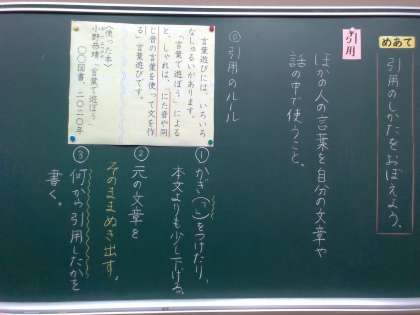 めあて
引用のしかたをおぼえよう。
引用
ほかの人の言葉を自分の文章や
話の中で使うこと。
◎引用のルール
①かぎ(「」)をつけたり、
本文よりも少し下げる。
②元の文章を
そのままぬき出す。
③何から引用したかを
書く。
言葉遊びには、いろいろ
なしゅるいがあります。
「言葉で遊ぼう」による
と、しゃれは、「にた音や同
じ音の言葉を使って文を作
る」言葉遊びです。
〈使った本〉
小野恭靖「言葉で遊ぼう」
〇〇図書、二〇二〇年